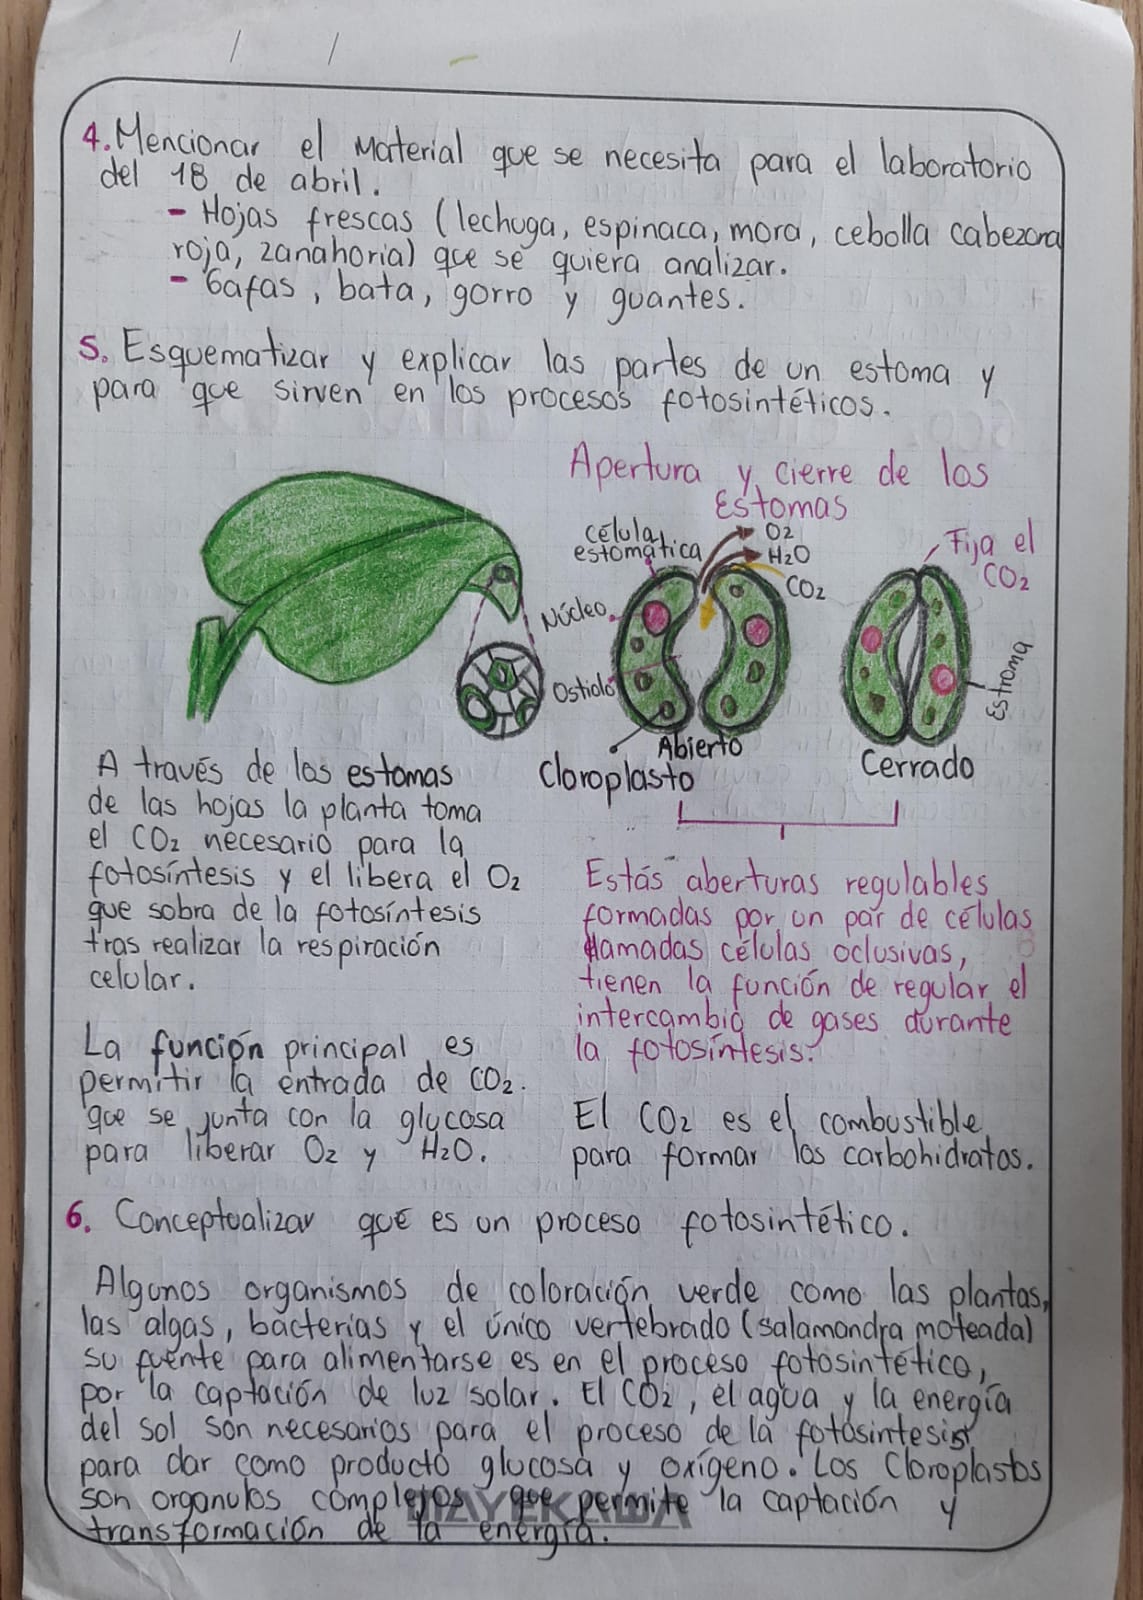 4. Mencionar el Material que se necesita para el laboratorio
del 18 de abril.
- Hojas frescas (lechuga, espinaca, mora, cebolla cabezona
roja, zanahoria) que se quiera analizar.
- Gafas, bata, gorro y guantes.
5. Esquematizar y explicar las partes de un estoma y
para que sirven en los procesos fotosintéticos.
Apertura y cierre de los
Estomas
célula
estomática
O2
H2O
CO2
Fija el
CO2
Núcleo
Ostiolo
Estroma
Abierto
Cerrado
Cloroplasto
A través de los estomas
de las hojas la planta toma
el CO2 necesario para la
fotosíntesis y el libera el O2
que sobra de la fotosíntesis
tras realizar la respiración
celular.
La función principal es
permitir la entrada de CO2.
que se junta con la glucosa
para liberar O2 y H2O.
Estás aberturas regulables
formadas por un par de células
llamadas células oclusivas,
tienen la función de regular el
intercambio de gases durante
la fotosíntesis.
El CO2 es el combustible
para formar los carbohidratos.
6. Conceptualizar qué es un proceso fotosintético.
Algunos organismos de coloración verde como las plantas,
las algas, bacterias y el único vertebrado (salamandra moteada)
su fuente para alimentarse es en el proceso fotosintético,
por la captación de luz solar. El CO2, el agua y la energía
del sol son necesarios para el proceso de la fotosíntesis
para dar como producto glucosa y oxígeno. Los Cloroplastos
son organulos complejos que permite la captación y
transformación de la energía.
MAYEKAWA